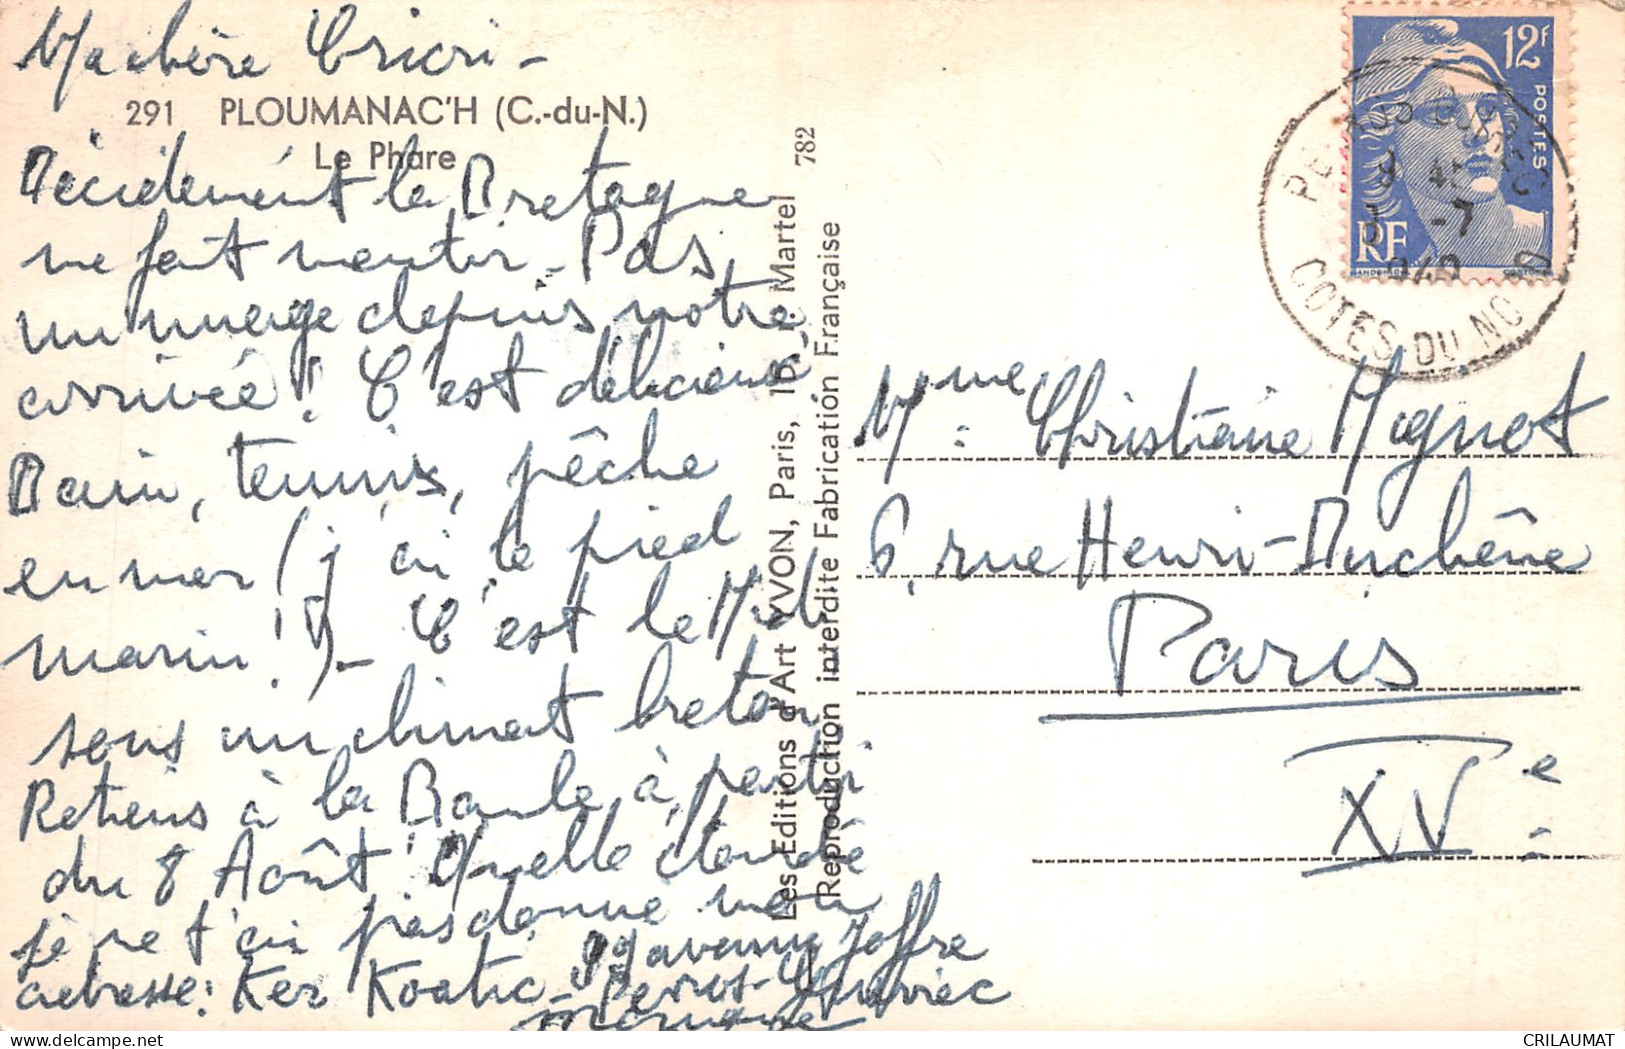 Ma chère Cricri -
291 PLOUMANAC'H (C.-du-N.)
Le Phare
Décidément la Bretagne
me fait mentir. Pas
un nuage depuis notre
arrivée! C'est délicieux
Bain, tennis, pêche
en mer (j'ai le pied
marin!) - C'est le Midi
sous un climat breton
Retiens à la Baule à partir
du 8 Août. Quelle étourdie
je ne t'ai pas donné mon
adresse: Ker Koatic 99 avenue Joffre
Perros-Guirec
782
Les Editions d'Art YVON, Paris, 15, r. Martel
Reproduction interdite Fabrication Française
12f
POSTES
RF
GANDON
PERROS GUIREC
-7
COTES DU NORD
Mme Christiane Mignot
6, rue Henri-Duchêne
Paris
XVe
CRILAUMAT